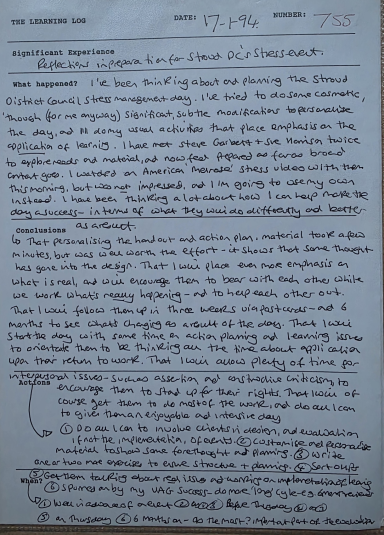 THE LEARNING LOG DATE: 17-1-94 NUMBER: 755
Significant Experience
Reflections in preparation for Stroud DC's Stress event.
What happened? I've been thinking about and planning the Stroud
District Council Stress management day. I've tried to do some cosmetic,
'though (for me anyway) significant, subtle modifications to personalise
the day, and I'll do my usual activities that place emphasis on the
application of learning. I have met Steve Garbert and Sue Morrison twice
to explore needs and material, and now feel prepared as far as broad
content goes. I watched an American stress video with them
this morning, but was not impressed, and I'm going to use my own
instead. I have been thinking a lot about how I can help make the
day a success - in terms of what they will do differently and better
as a result.
Conclusions
That personalising the handout and action plan, material took a few
minutes, but was well worth the effort - it shows that some thought
has gone into the design. That I will place even more emphasis on
what is real, and will encourage them to bear with each other while
we work what's really happening - and to help each other out.
That I will follow them up in three weeks via postcards - and 6
months to see what's changing as a result of the day. That I will
start the day with some time on action planning and learning issues
to orientate them to be thinking all the time about application
upon their return to work. That I will allow plenty of time for
interpersonal issues - such as assertion and constructive criticism, to
Actions encourage them to stand up for their rights. That I will of
course get them to do most of the work, and do all I can
to give them an enjoyable and intensive day
① Do all I can to involve clients in design, and evaluation
if not the implementation, of events. ② Customise and personalise
material to show some forethought and planning. ③ Write
one or two more exercises to ensure structure + planning. ④ Sort out
⑤ Get them talking about real issues and working on implementation of learning
When? ⑥ Spurred on by my UAG success do more long cycle
① Well in advance of event
③ on Thursday ⑥ 6 months on - as the most important part of the evaluation